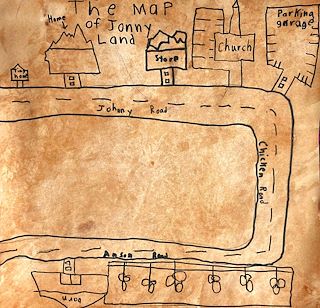 The MAP
of Jonny
Land
Home
Store
Church
Parking
garage
Johnny Road
Chicken Road
Anson Road